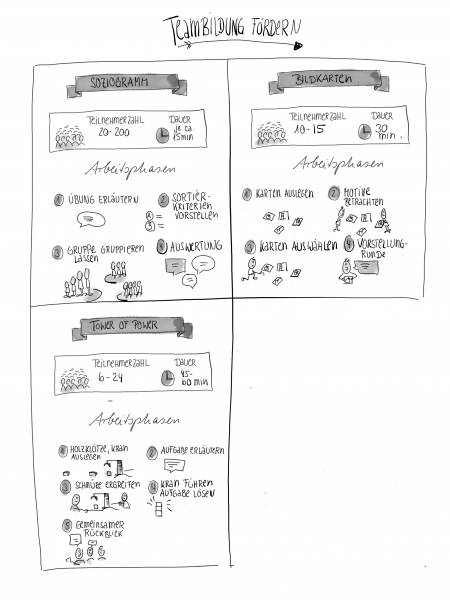 TEAMBILDUNG FÖRDERN
SOZIOGRAMM
TEILNEHMERZAHL
20-200
DAUER
je ca.
15min
Arbeitsphasen
1 ÜBUNG ERLÄUTERN
2 SORTIER-
KRITERIEN
VORSTELLEN
3 GRUPPE GRUPPIEREN
LASSEN
4 AUSWERTUNG
BILDKARTEN
TEILNEHMERZAHL
10-15
DAUER
30
min
Arbeitsphasen
1 KARTEN AUSLEGEN
2 MOTIVE
BETRACHTEN
3 KARTEN AUSWÄHLEN
4 VORSTELLUNG-
RUNDE
TOWER OF POWER
TEILNEHMERZAHL
6-24
DAUER
45-
60 min
Arbeitsphasen
1 HOLZKLÖTZE, KRAN
AUSLEGEN
2 AUFGABE ERLÄUTERN
3 SCHNÜRE ERGREIFEN
4 KRAN FÜHREN
AUFGABE LÖSEN
5 GEMEINSAMER
RÜCKBLICK